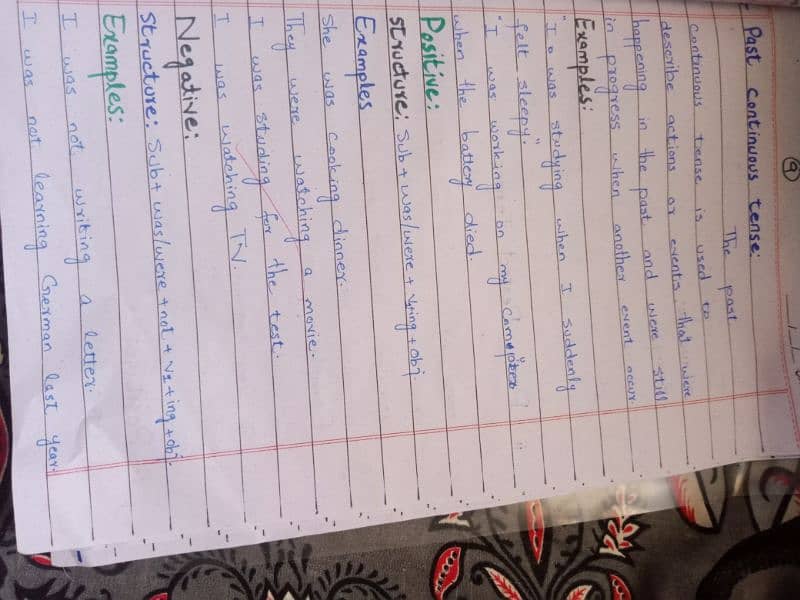 9
Past Continuous tense:
The past
continuous tense is used to
describe actions or events that were
happening in the past and were still
in progress when another event occur.
Examples:
"I was studying when I suddenly
felt sleepy."
"I was working on my computer
when the battery died.
Positive:
structure: Sub + was/were + ving + obj.
Examples
She was cooking dinner.
They were watching a movie.
I was studing for the test.
I was watching TV.
Negative:
structure: Sub + was/were + not + v1 + ing + obj.
Examples:
I was not writing a letter.
I was not learning German last year.